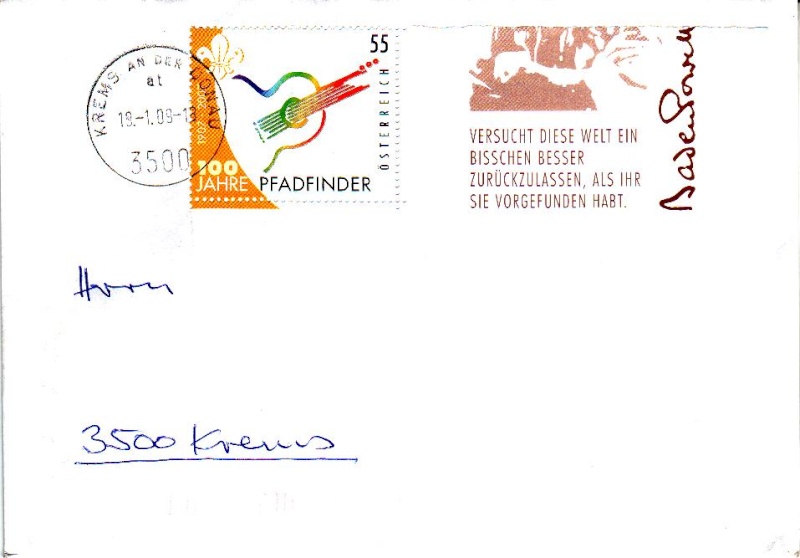 KREMS AN DER DONAU
at
19.-1.09-13
3500
55
ÖSTERREICH
100
JAHRE PFADFINDER
VERSUCHT DIESE WELT EIN
BISSCHEN BESSER
ZURÜCKZULASSEN, ALS IHR
SIE VORGEFUNDEN HABT.
Baden Powell
Herrn
3500 Krems